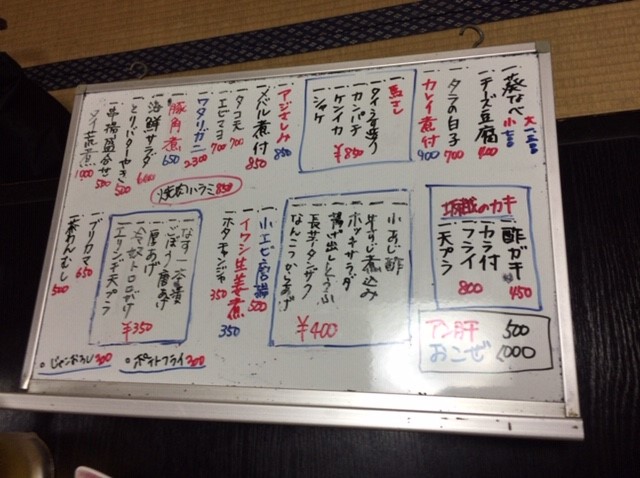 葵なべ 小七〇〇 大一三〇〇
チーズ豆腐 400
タラの白子 700
カレイ煮付 900
馬さし
タイラギ造り
カンパチ
ケンイカ
シャケ
¥850
アジさしみ 850
メバル煮付 850
タコ天 700
エビマヨ 700
ワタリガニ 2300
豚角煮 650
海鮮サラダ
とりバターやき 500
串揚盛合せ 500
1000
焼肉ハラミ 850
坂越のカキ
酢ガキ 450
カラ付
フライ
天プラ
800
アン肝 500
おこぜ 1000
小あじ酢
牛すじ煮込み
ホッキサラダ
揚げ出しとうふ
長芋タンザク
なんこつからあげ
¥400
小エビ唐揚 500
イワシ生姜煮 350
ホタチャンジャ 350
なす一本漬
ごぼう唐あげ
厚あげ
冷奴トロロかけ
エリンギ天プラ
¥350
ブリカマ 650
茶わんむし 500
じゃこおろし 300
ポテトフライ 300